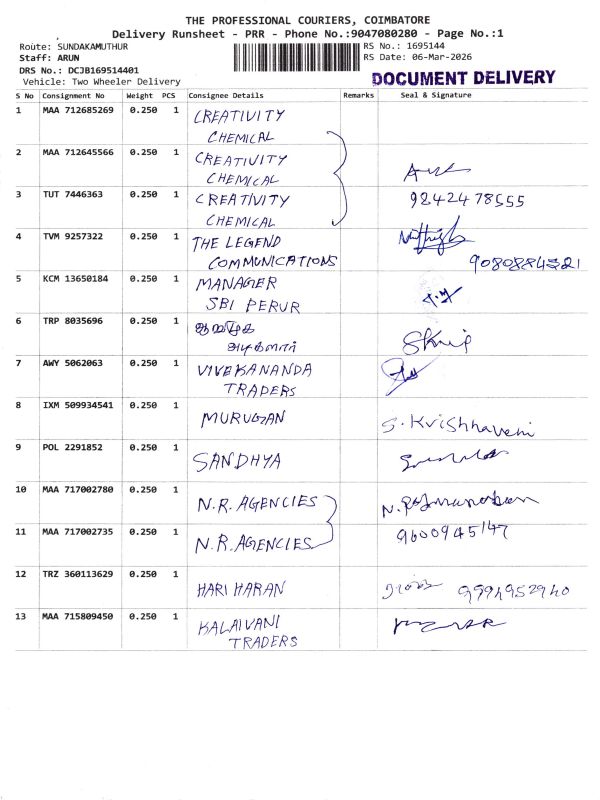 THE PROFESSIONAL COURIERS, COIMBATORE
Delivery Runsheet - PRR - Phone No.:9047080280 - Page No.:1
Route: SUNDAKAMUTHUR
RS No.: 1695144
Staff: ARUN
RS Date: 06-Mar-2026
DRS No.: DCJB169514401
Vehicle: Two Wheeler Delivery
DOCUMENT DELIVERY
S No Consignment No Weight PCS Consignee Details Remarks Seal & Signature
1 MAA 712685269 0.250 1 CREATIVITY
CHEMICAL
2 MAA 712645566 0.250 1 CREATIVITY
CHEMICAL
3 TUT 7446363 0.250 1 CREATIVITY 9842478555
CHEMICAL
4 TVM 9257322 0.250 1 THE LEGEND
COMMUNICATIONS 9080884321
5 KCM 13650184 0.250 1 MANAGER
SBI PERUR
6 TRP 8035696 0.250 1
அடிகளார்
7 AWY 5062063 0.250 1 VIVEKANANDA
TRADERS
8 IXM 509934541 0.250 1 MURUGAN S. Krishnaveni
9 POL 2291852 0.250 1 SANDHYA
10 MAA 717002780 0.250 1 N.R. AGENCIES
11 MAA 717002735 0.250 1 N.R. AGENCIES 9600945147
12 TRZ 360113629 0.250 1 HARI HARAN 9994952940
13 MAA 715809450 0.250 1 KALAIVANI
TRADERS